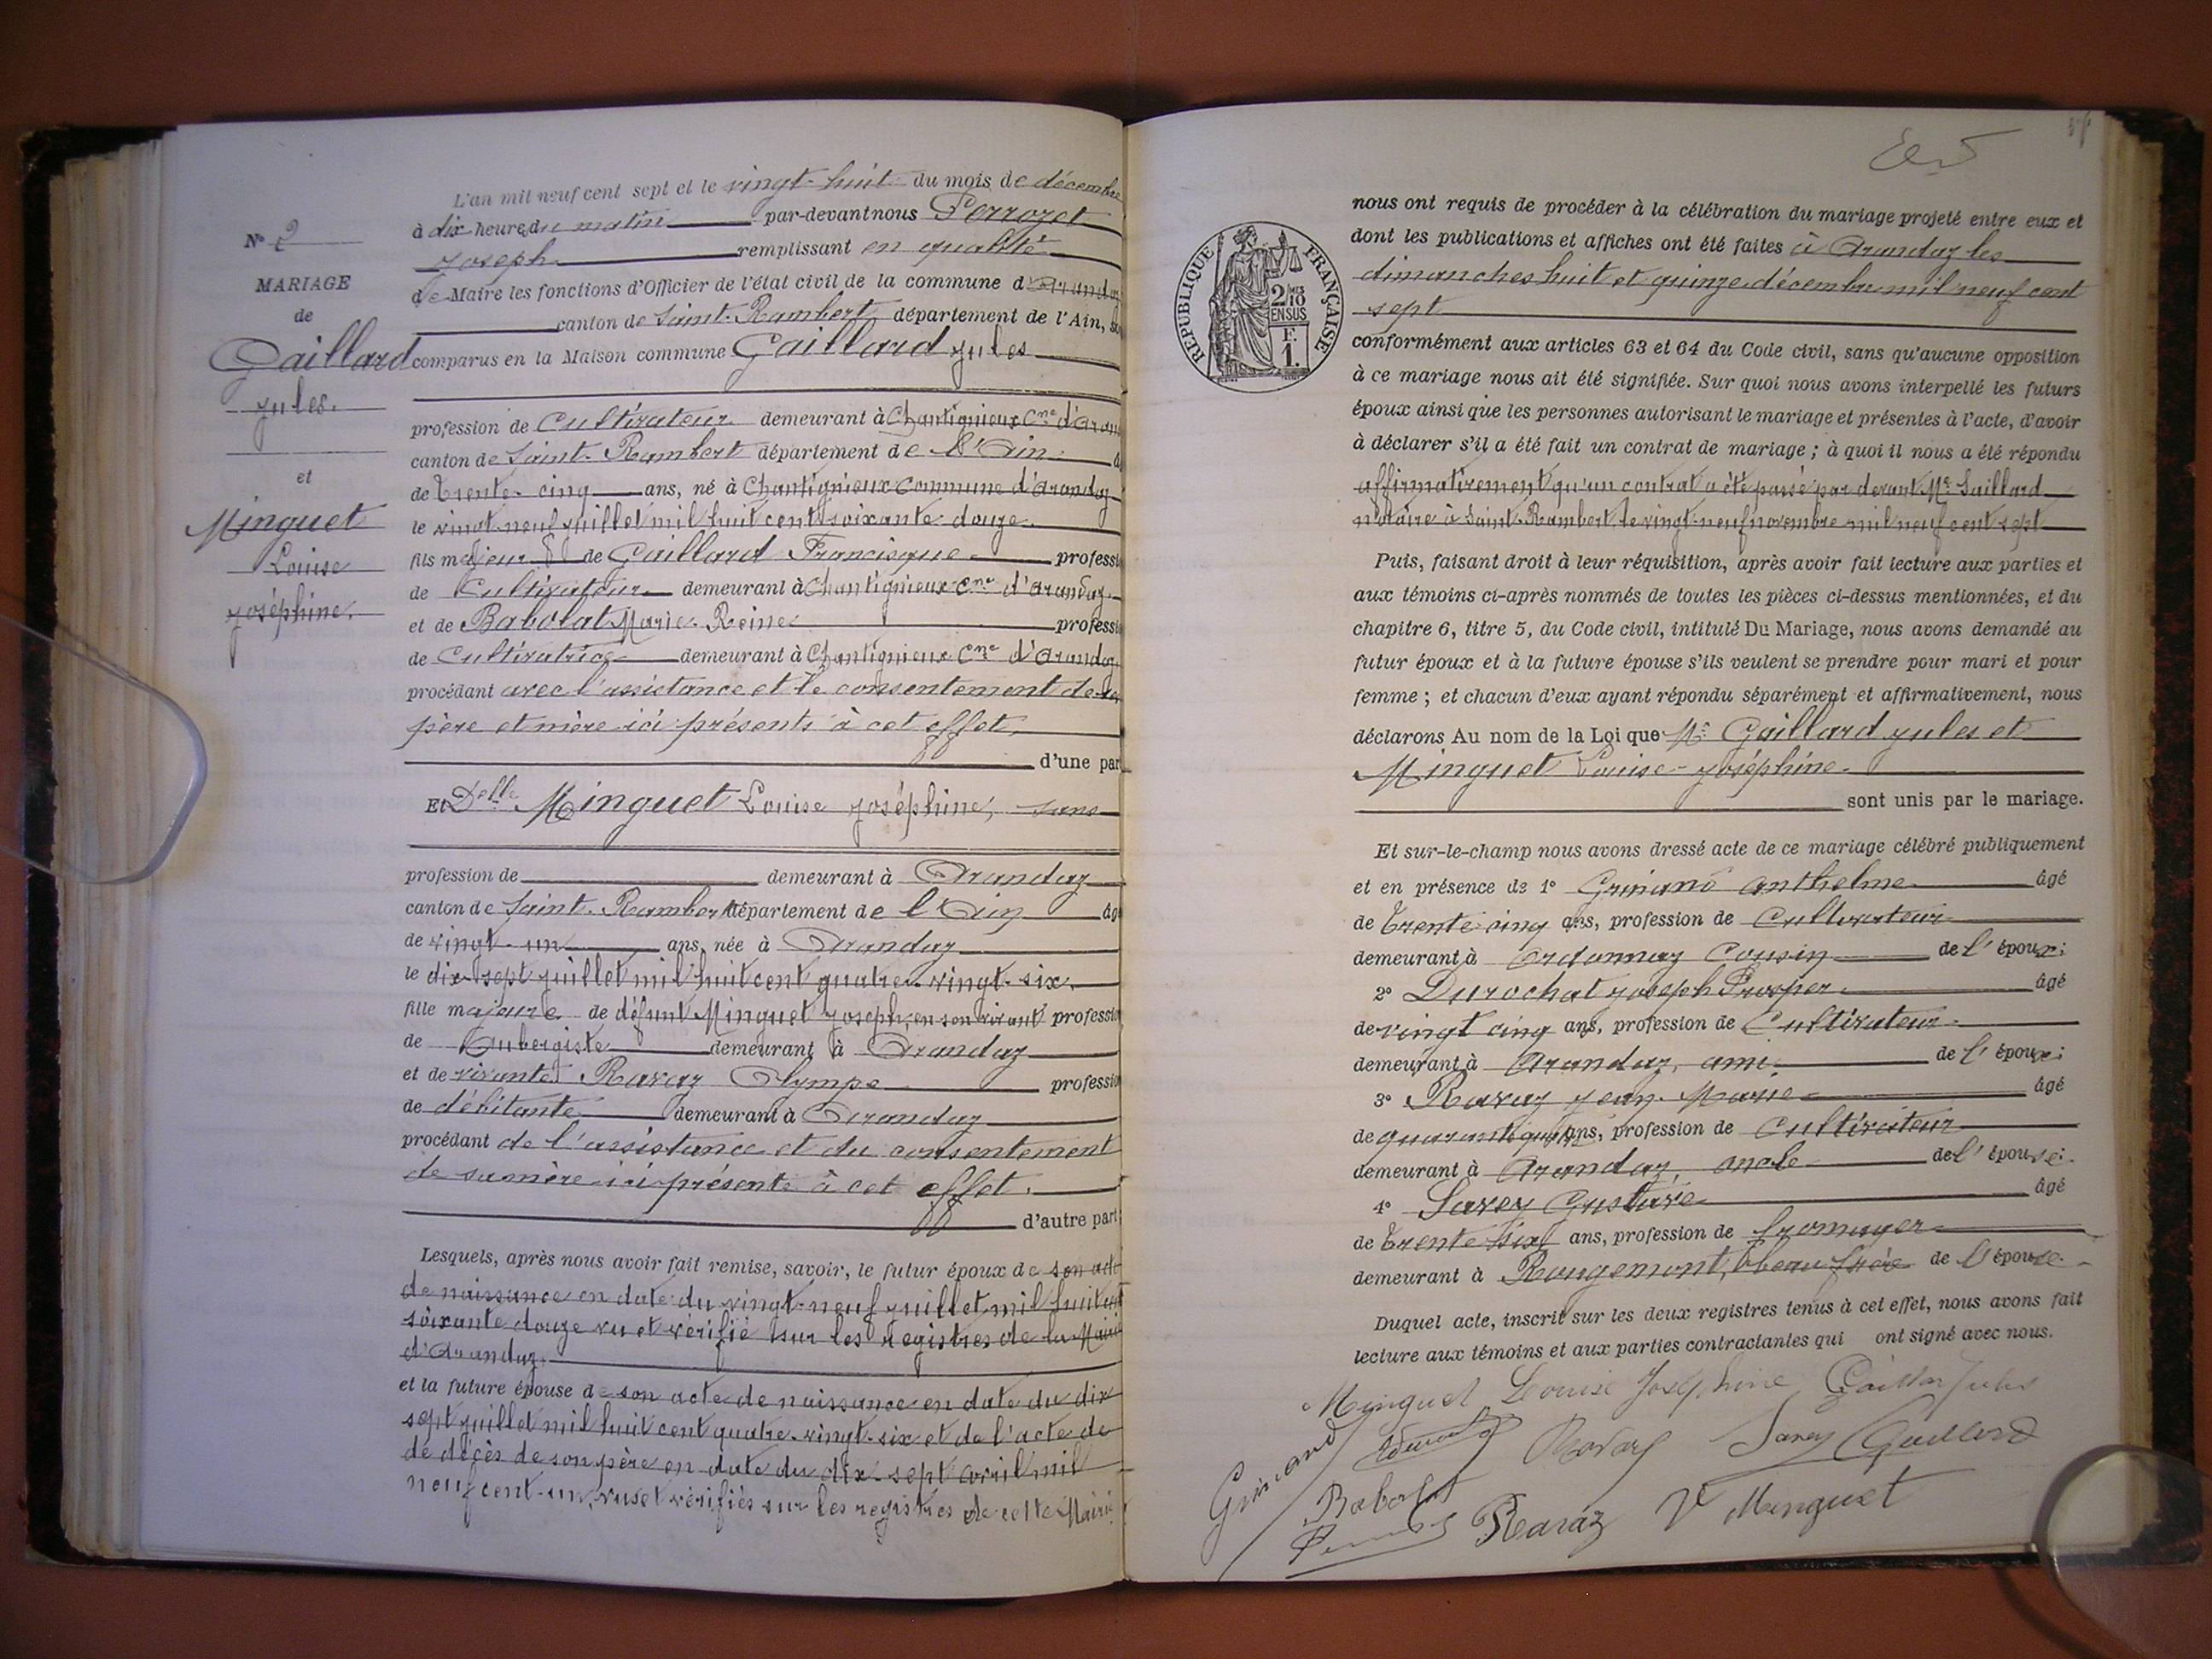 L'an mil neuf cent sept et le vingt-huit du mois de décembre
à dix heures du matin par-devant nous Perrozet
Joseph remplissant en qualité
de Maire les fonctions d'Officier de l'état civil de la commune d'Arandaz
canton de Saint-Rambert département de l'Ain,
comparus en la Maison commune Gaillard Jules
profession de Cultivateur demeurant à Chantignieux Cne d'Aran
canton de Saint-Rambert département de l'Ain
de trente-cinq ans, né à Chantignieux Commune d'Arandaz
le vingt-neuf juillet mil huit cent soixante-douze.
fils majeur de Gaillard Francisque professi
de Cultivateur demeurant à Chantignieux Cne d'Arandaz
et de Babolat Marie-Reine professi
de Cultivatrice demeurant à Chantignieux Cne d'Arandaz
procédant avec l'assistance et le consentement de
père et mère ici présents à cet effet.
d'une part
Et Delle Minguet Louise Joséphine, sans
profession de demeurant à Arandaz
canton de Saint-Rambert département de l'Ain âgé
de vingt-un ans, née à Arandaz
le dix-sept juillet mil huit cent quatre-vingt-six.
fille majeure de défunt Minguet Joseph, en son vivant professio
de Aubergiste demeurant à Arandaz
et de vivante Ravaz Olympe professio
de débitante demeurant à Arandaz
procédant de l'assistance et du consentement
de sa mère ici présente à cet effet.
d'autre part
Lesquels, après nous avoir fait remise, savoir, le futur époux de son acte
de naissance en date du vingt-neuf juillet mil huit cent
soixante douze vu et vérifié sur les registres de la Mairie
d'Arandaz.
et la future épouse de son acte de naissance en date du dix
sept juillet mil huit cent quatre-vingt-six et de l'acte de
de décès de son père en date du dix-sept avril mil
neuf cent-un, vus et vérifiés sur les registres de cette Mairie.
No 2
MARIAGE
de
Gaillard
Jules.
et
Minguet
Louise
Joséphine.
nous ont requis de procéder à la célébration du mariage projeté entre eux et
dont les publications et affiches ont été faites à Arandaz les
dimanches huit et quinze décembre mil neuf cent
sept
RÉPUBLIQUE FRANÇAISE
2/10 MES
EN SUS
F.
1.
conformément aux articles 63 et 64 du Code civil, sans qu'aucune opposition
à ce mariage nous ait été signifiée. Sur quoi nous avons interpellé les futurs
époux ainsi que les personnes autorisant le mariage et présentes à l'acte, d'avoir
à déclarer s'il a été fait un contrat de mariage ; à quoi il nous a été répondu
affirmativement qu'un contrat a été passé par devant Me Saillard
notaire à Saint-Rambert le vingt-neuf novembre mil neuf cent sept
Puis, faisant droit à leur réquisition, après avoir fait lecture aux parties et
aux témoins ci-après nommés de toutes les pièces ci-dessus mentionnées, et du
chapitre 6, titre 5, du Code civil, intitulé Du Mariage, nous avons demandé au
futur époux et à la future épouse s'ils veulent se prendre pour mari et pour
femme ; et chacun d'eux ayant répondu séparément et affirmativement, nous
déclarons Au nom de la Loi que Mr Gaillard Jules et
Minguet Louise-Joséphine.
sont unis par le mariage.
Et sur-le-champ nous avons dressé acte de ce mariage célébré publiquement
et en présence de 1° Grinand Anthelme âgé
de trente cinq ans, profession de Cultivateur
demeurant à Ordonnaz Cousin de l'époux;
2° Durochat Joseph Prosper âgé
de vingt cinq ans, profession de Cultivateur
demeurant à Arandaz, ami de l'époux;
3° Ravaz Jean-Marie âgé
de quarante ans, profession de Cultivateur
demeurant à Arandaz, oncle de l'épouse.
4° Savey Gustave âgé
de trente six ans, profession de fromager
demeurant à Rougemont, beau frère de l'épouse
Duquel acte, inscrit sur les deux registres tenus à cet effet, nous avons fait
lecture aux témoins et aux parties contractantes qui ont signé avec nous.
Minguet Louise Joséphine Gaillard Jules
Grinand Ravaz Savey Gaillard
Babolat
Ravaz Ve Minguet